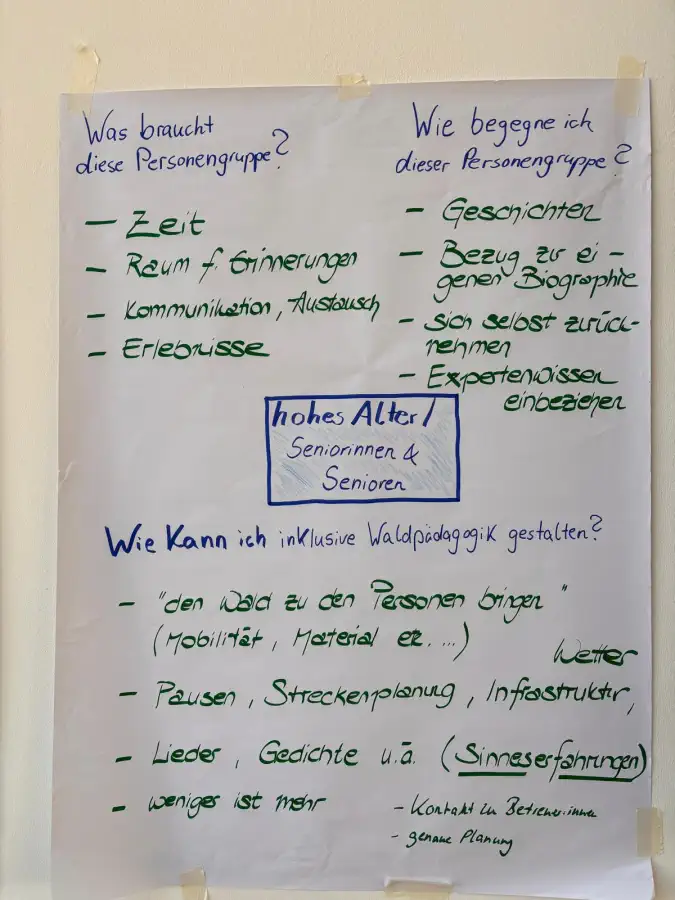 Was braucht
diese Personengruppe?
- Zeit
- Raum f. Erinnerungen
- Kommunikation, Austausch
- Erlebnisse
Wie begegne ich
dieser Personengruppe?
- Geschichten
- Bezug zu ei-
genen Biographie
- sich selbst zurück-
nehmen
- Expertenwissen
einbeziehen
hohes Alter/
Seniorinnen &
Senioren
Wie kann ich inklusive Waldpädagogik gestalten?
- "den Wald zu den Personen bringen"
(Mobilität, Material etc. ...)
Wetter
- Pausen, Streckenplanung, Infrastruktur,
- Lieder, Gedichte u.ä. (Sinneserfahrungen)
- weniger ist mehr
- Kontakt zu Betreuer:innen
- genaue Planung